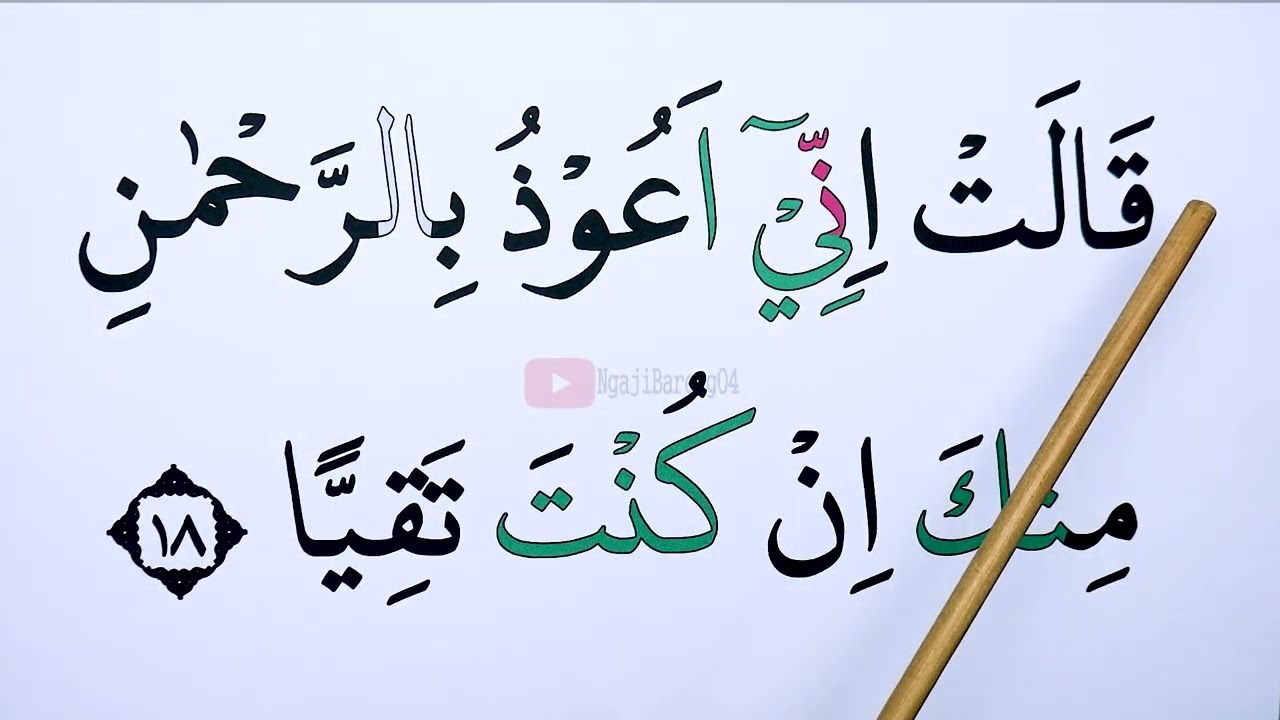 قَالَتْ اِنِّيْٓ اَعُوْذُ بِالرَّحْمٰنِ
NgajiBareng04
مِنْكَ اِنْ كُنْتَ تَقِيًّا ١٨